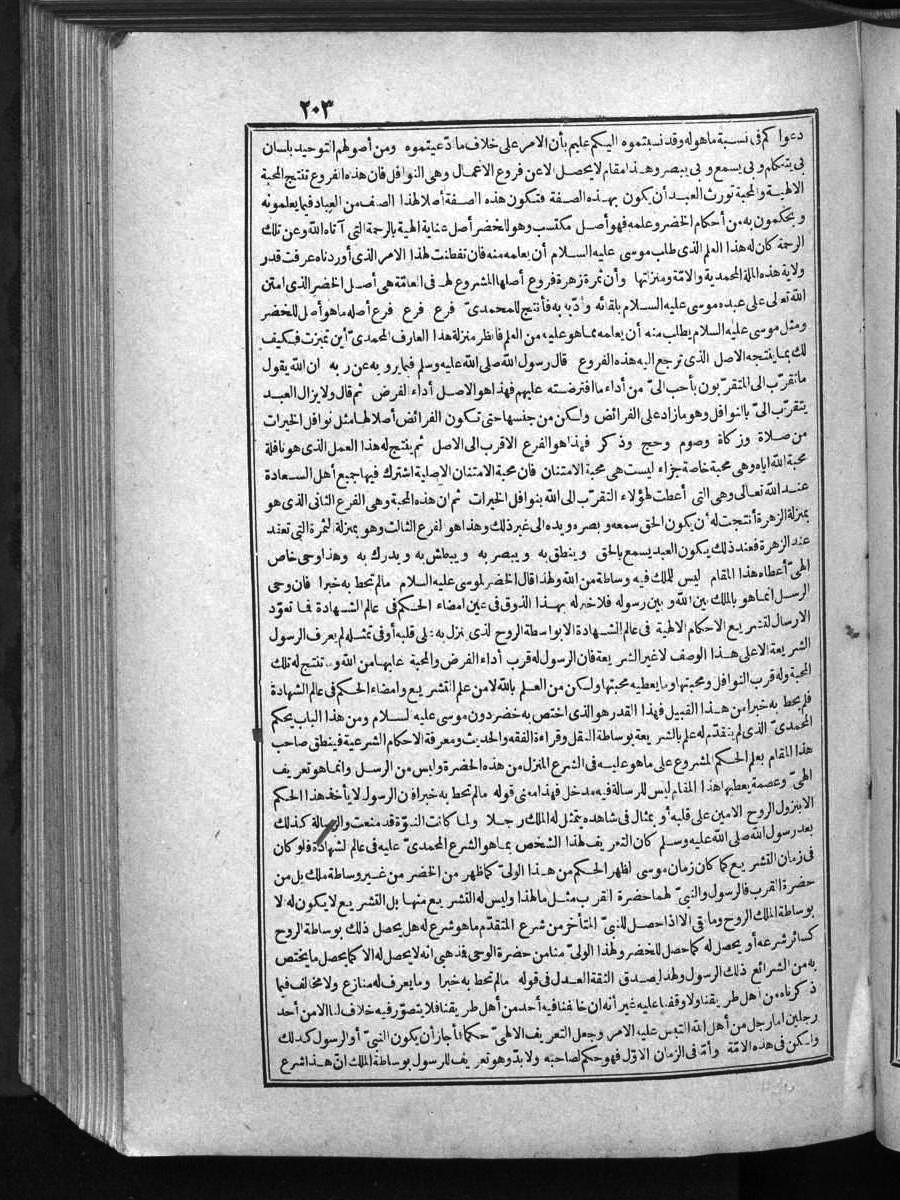 ٢٠٣
دعواكم فى نسبة ما هو له وقد نسبتموه اليكم عليم بأن الامر على خلاف ما ادّعيتموه ومن أصولهم التوحيد بلسان
بى يتكلم وبى يسمع وبى يبصر وهذا مقام لا يحصل الا عن فروع الاعمال وهى النوافل فان هذه الفروع تنتج المحبة
الالهية والمحبة تورث العبد أن يكون بهذه الصفة فتكون هذه الصفة أصلا لهذا الصنف من العباد فيما يعلمونه
ويحكمون به من أحكام الخضر وعلمه فهو أصل مكتسب وهو للخضر أصل عناية الهية بالرحمة التى آتاه الله وعن تلك
الرحمة كان له هذا العلم الذى طلب موسى عليه السلام أن يعلمه منه فان تفطنت لهذا الامر الذى أوردناه عرفت قدر
ولاية هذه الملة المحمدية والامّة ومنزلتها وأن ثمرة زهرة فروع أصلها المشروع لها فى العامّة هى أصل الخضر الذى امتن
الله تعالى على عبده موسى عليه السلام بلقائه وأدّبه به فأنتج للمحمدىّ فرع فرع فرع أصله ما هو أصل للخضر
ومثل موسى عليه السلام يطلب منه أن يعلمه مما هو عليه من العلم فانظر منزلة هذا العارف المحمدىّ أين تميزت فكيف
لك بما ينتجه الاصل الذى ترجع اليه هذه الفروع قال رسول الله صلى الله عليه وسلم فيما يرويه عن ربه ان الله يقول
ما تقرّب الى المتقرّبون بأحب الىّ من أداء ما افترضته عليهم فهذا هو الاصل أداء الفرض ثم قال ولا يزال العبد
يتقرّب الىّ بالنوافل وهو ما زاد على الفرائض ولكن من جنسها حتى تكون الفرائض أصلا لها مثل نوافل الخيرات
من صلاة وزكاة وصوم وحج وذكر فهذا هو الفرع الاقرب الى الاصل ثم ينتج له هذا العمل الذى هو نافلة
محبة الله اياه وهى محبة خاصة جزاء ليست هى محبة الامتنان فان محبة الامتنان الاصلية اشترك فيها جميع أهل السعادة
عند الله تعالى وهى التى أعطت لهؤلاء التقرّب الى الله بنوافل الخيرات ثم ان هذه المحبة وهى الفرع الثانى الذى هو
بمنزلة الزهرة أنتجت له أن يكون الحق سمعه وبصره ويده الى غير ذلك وهذا هو الفرع الثالث وهو بمنزلة الثمرة التى تعقد
عند الزهرة فعند ذلك يكون العبد يسمع بالحق وينطق به ويبصر به ويبطش به ويدرك به وهذا وحى خاص
الهىّ أعطاه هذا المقام ليس للملك فيه وساطة من الله ولهذا قال الخضر لموسى عليه السلام ما لم تحط به خبرا فان وحى
الرسل انما هو بالملك بين الله وبين رسوله فلا خبر له بهذا الذوق فى عين امضاء الحكم فى عالم الشهادة فما تعوّد
الارسال لتشريع الاحكام الالهية فى عالم الشهادة الا بواسطة الروح الذى نزل به على قلبه أو فى تمثله لم يعرف الرسول
الشريعة الا على هذا الوصف لا غير الشريعة فان الرسول له قرب أداء الفرض والمحبة عليها من الله وما تنتج له تلك
المحبة وله قرب النوافل ومحبتها وما يعطيه محبتها ولكن من العلم بالله لا من علم التشريع وامضاء الحكم فى عالم الشهادة
فلم يحط به خبرا من هذا القبيل فهذا القدر هو الذى اختص به خضر دون موسى عليه السلام ومن هذا الباب يحكم
المحمدىّ الذى لم يتقدّم له علم بالشريعة بوساطة النقل وقراءة الفقه والحديث ومعرفة الاحكام الشرعية فينطق صاحب
هذا المقام بعلم الحكم المشروع على ما هو عليه فى الشرع المنزل من هذه الحضرة وليس من الرسل وانما هو تعريف
الهىّ وعصمة يعطيها هذا المقام ليس للرسالة فيه مدخل فهذا معنى قوله ما لم تحط به خبرا فان الرسول لا يأخذ هذا الحكم
الا بنزول الروح الامين على قلبه أو بمثال فى شاهده يتمثل له الملك رجلا ولما كانت النبوّة قد منعت والرسالة كذلك
بعد رسول الله صلى الله عليه وسلم كان التعريف لهذا الشخص بما هو الشرع المحمدىّ عليه فى عالم الشهادة فلو كان
فى زمان التشريع كما كان زمان موسى لظهر الحكم من هذا الولىّ كما ظهر من الخضر من غير وساطة ملك بل من
حضرة القرب فالرسول والنبىّ لهما حضرة القرب مثل ما لهذا وليس له التشريع منها بل التشريع لا يكون له الا
بوساطة الملك الروح وما بقى الا اذا حصل للنبىّ المتأخر من شرع المتقدّم ما هو شرع له هل يحصل ذلك بوساطة الروح
كسائر شرعه أو يحصل له كما حصل للخضر ولهذا الولىّ منا من حضرة الوحى فذهبى انه لا يحصل له الا كما يحصل ما يختص
به من الشرائع ذلك الرسول ولهذا يصدق الثقة العدل فى قوله ما لم تحط به خبرا وما يعرف له منازع ولا مخالف فيما
ذكرناه من أهل طريقنا ولا وقفنا عليه غير أنه ان خالفنا فيه أحد من أهل طريقنا فلا يتصوّر فيه خلاف لنا الا من أحد
رجلين اما رجل من أهل الله التبس عليه الامر وجعل التعريف الالهىّ حكما فأجاز أن يكون النبىّ أو الرسول كذلك
ولكن فى هذه الامّة وأما فى الزمان الاوّل فهو حكم لصاحبه ولا بدّ وهو تعريف للرسول بوساطة الملك انّ هذا شرع